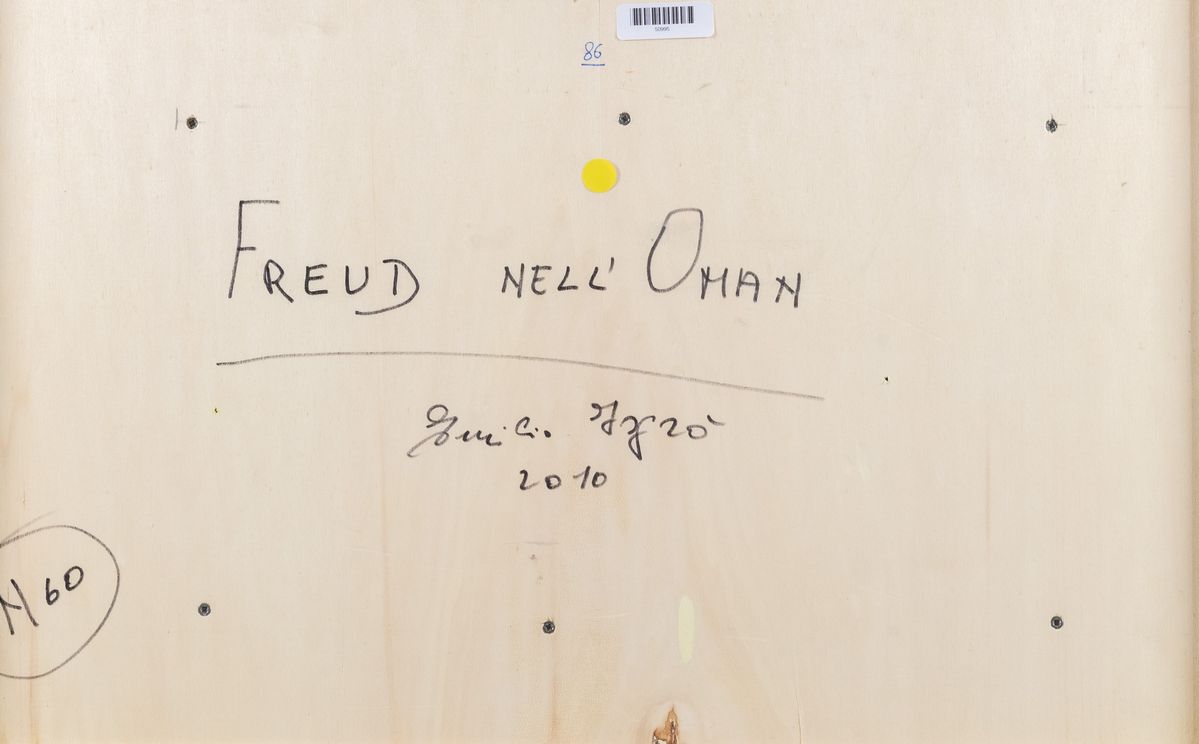 50995
86
FREUD NELL' OMAN
Emilio Isgrò
2010
N60